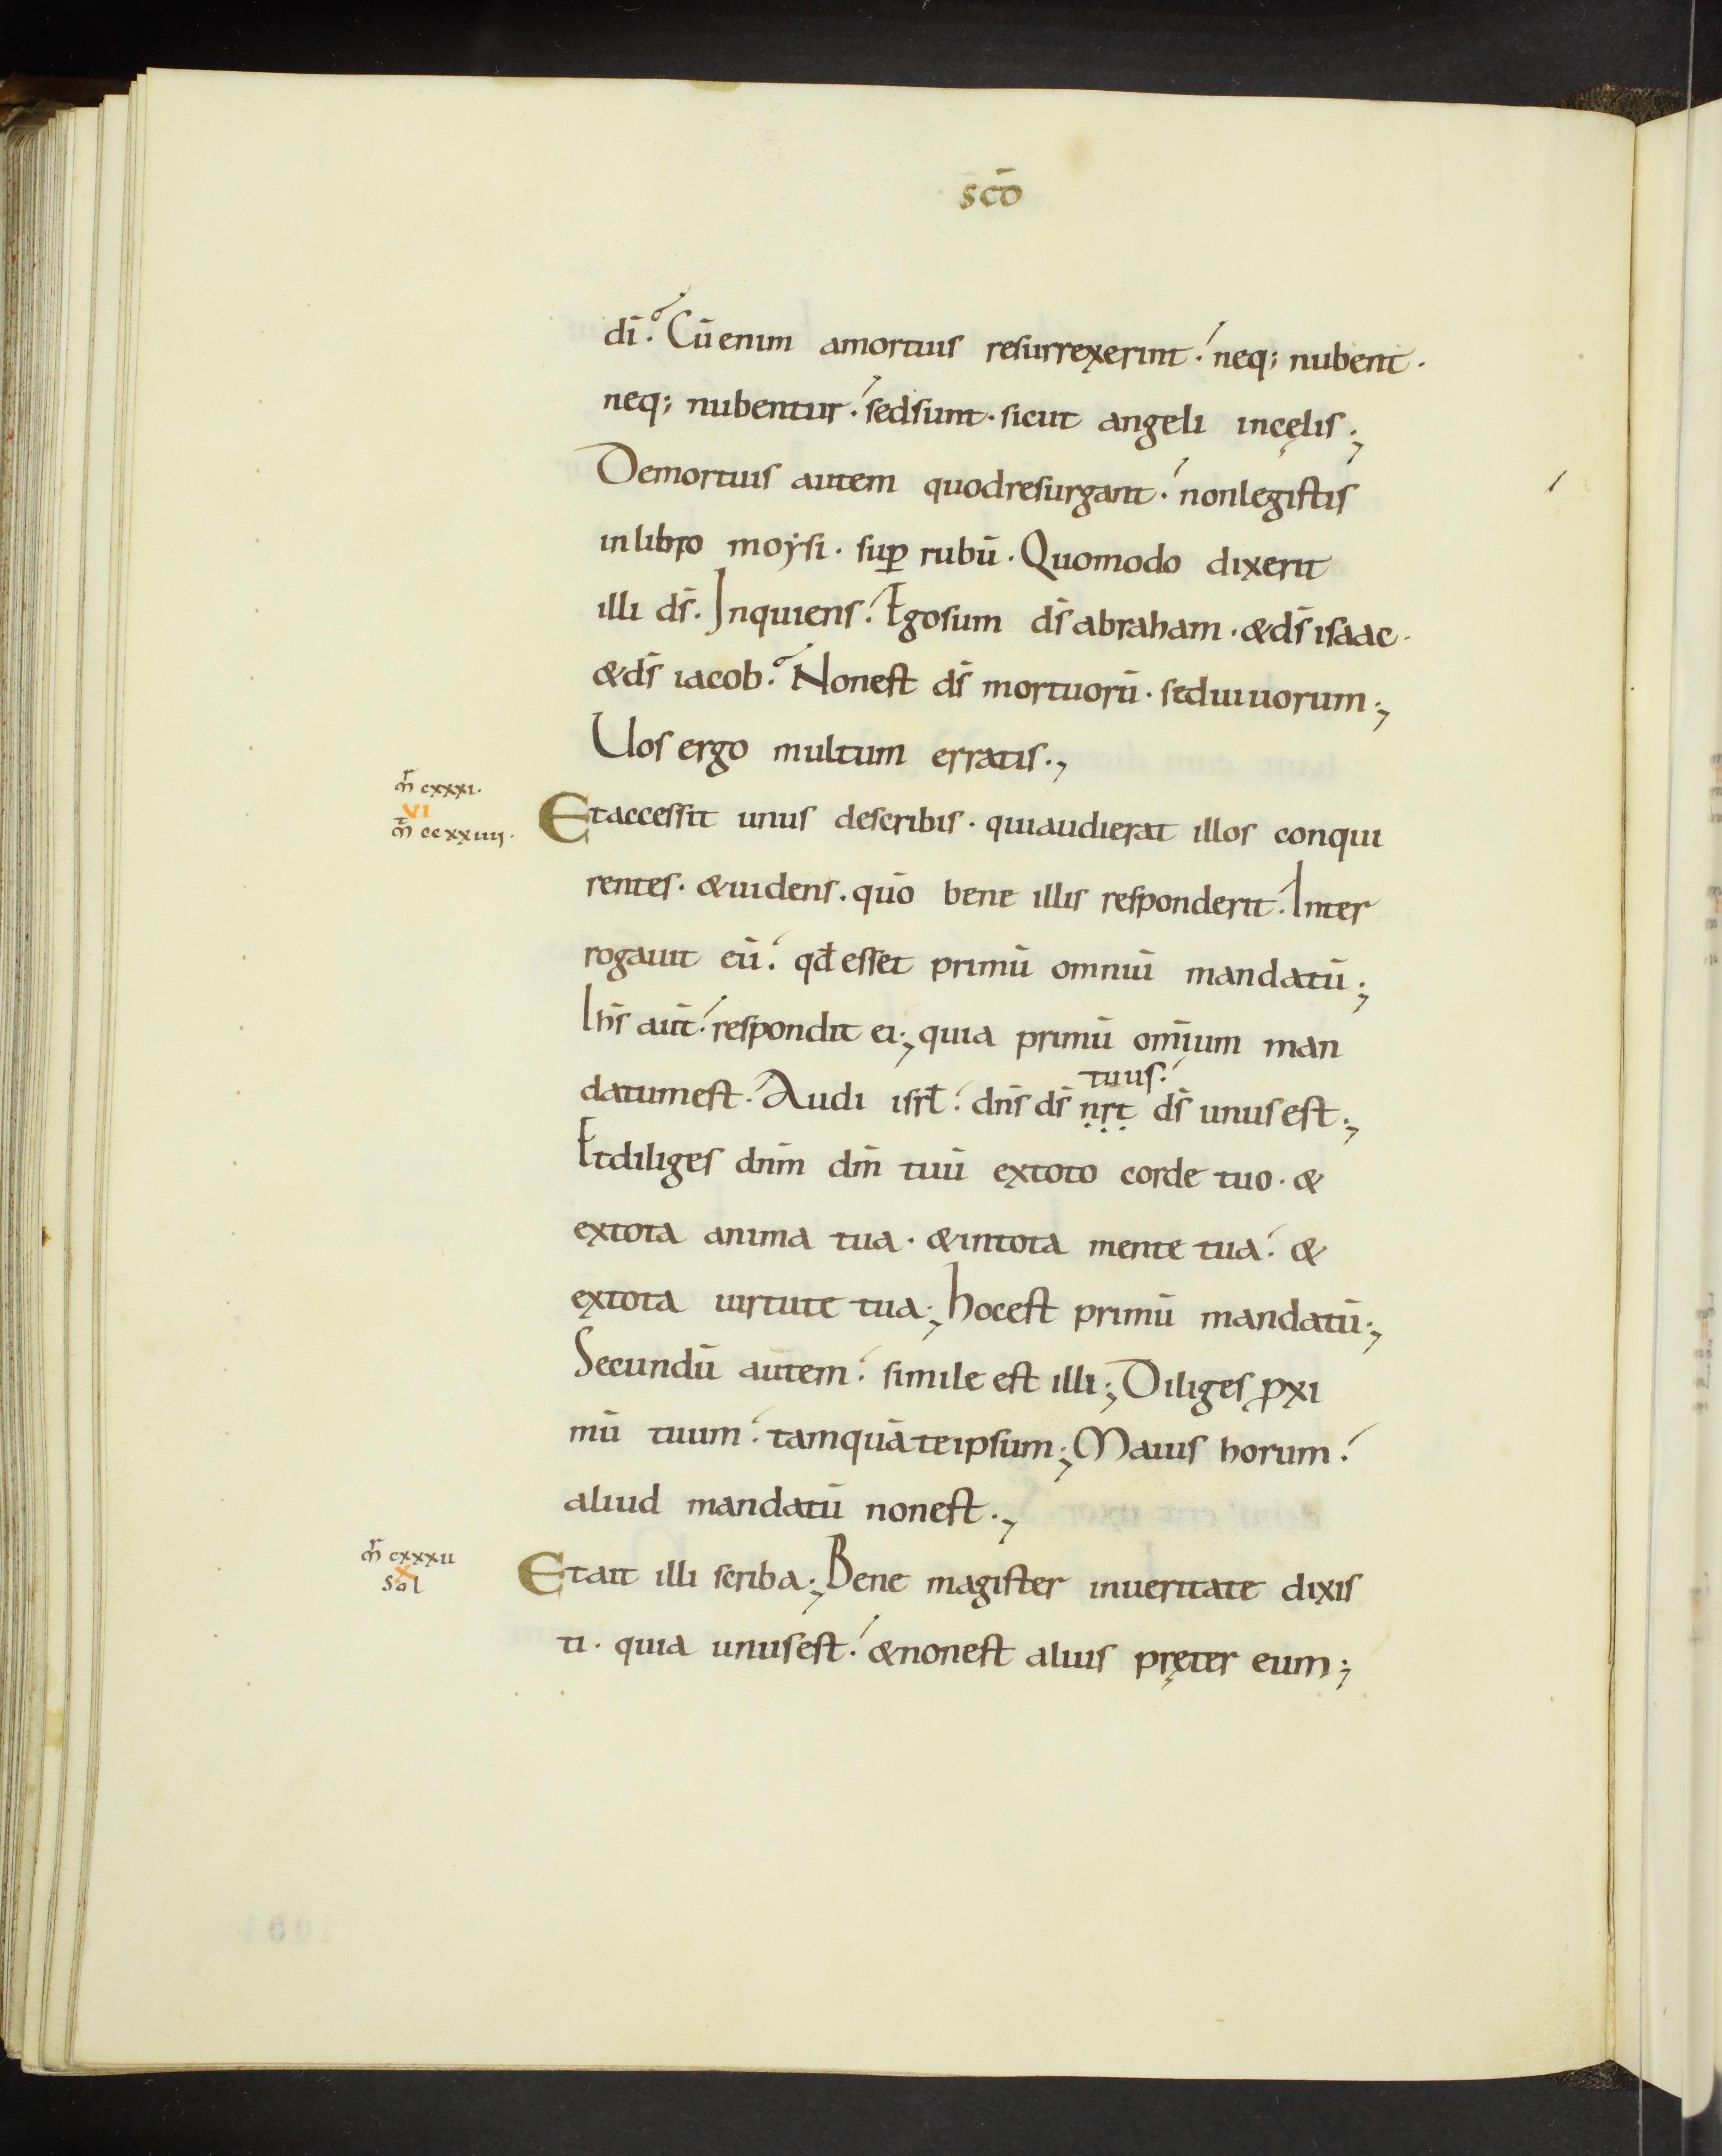 scō
dī. Cū enim a mortuis resurrexerint. neq; nubent.
neq; nubentur. sed sunt. sicut angeli in cęlis;
De mortuis autem quod resurgant. non legistis
in libro moysi. suꝑ rubū. Quomodo dixerit
illi d̄s. Inquiens. Ego sum d̄s abraham. & d̄s isaac.
& d̄s iacob. Non est d̄s mortuorū. sed uiuorum;
Uos ergo multum erratis;
m̄r cxxxi.
VI
m̄t ccxxiiii.
Et accessit unus de scribis. qui audierat illos conqui
rentes. & uidens. quō bene illis responderit. Inter
rogauit eū. qđ esset primū omniū mandatū;
Ih̄s aūt. respondit ei; quia primū om̄ium man
datum est. Audi isrł. dn̄s d̄s nrt tuus. d̄s unus est;
Et diliges dn̄m dm̄ tuū ex toto corde tuo. &
ex tota anima tua. & in tota mente tua. &
ex tota uirtute tua; hoc est primū mandatū;
Secundū autem. simile est illi; Diliges ꝓxi
mū tuum. tamquā te ipsum; Maius horum.
aliud mandatū non est;
m̄r cxxxii
X
Sol
Et ait illi scriba; Bene magister in ueritate dixis
ti. quia unus est. & non est alius pręter eum;